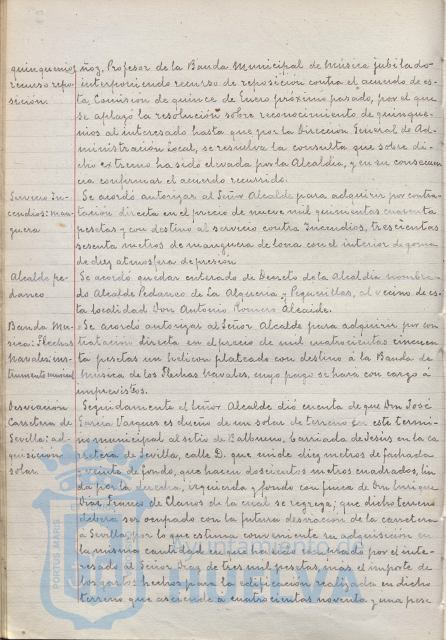 quinquenios ñoz, Profesor de la Banda Municipal de Música jubilado
recurso repo- interponiendo recurso de reposición contra el acuerdo de es-
sición. ta, Comisión de quince de Enero próximo pasado, por el que
se aplazó la resolución sobre reconocimiento de quinque-
nios al interesado hasta que por la Dirección General de Ad-
ministración Local, se resuelva la consulta que sobre di-
cho extremo ha sido elevada por la Alcaldía, y en su consecuen
cia confirmar el acuerdo recurrido.
Servicio In- Se acordó autorizar al Señor Alcalde para adquirir por contra-
cendios: man- tación directa en el precio de nueve mil quinientas cuarenta
guera pesetas y con destino al servicio contra Incendios, trescientos
sesenta metros de manguera de lona con el interior de goma
de diez atmosferas de presión.
Alcalde pe- Se acordó quedar enterado de Decreto de la Alcaldía nombran-
daneo do Alcalde Pedaneo de La Algueria y Pequenillas, al vecino de es-
ta localidad Don Antonio Romero Alcaide.
Banda Mú- Se acordó autorizar al Señor Alcalde para adquirir por con
sica: Flechas tratación directa en el precio de mil cuatrocientas cincuen
Navales: ins- ta pesetas un helicon plateado con destino á la Banda de
trumento musical Música de los Flechas Navales, cuyo pago se hará con cargo á
imprevistos.
Desviación Seguidamente el Señor Alcalde dió cuenta de que Don José
Carretera de García Vargues es dueño de un solar de terreno en este termi-
Sevilla: ad- no municipal al sitio de Balbueno, barriada de Jesús en la ca
quisición rretera de Sevilla, calle D. que mide diez metros de fachada
solar. y veinte de fondo, que hacen doscientos metros cuadrados, lin
da por la derecha, izquierda y fondo con finca de Don Enrique
Díaz, Franco de Llanos de la cual se segrega; que dicho terreno
deberá ser ocupado con la futura desviación de la carretera
á Sevilla, por lo que estima conveniente su adquisición en
la misma cantidad en que ha sido comprado por el inte-
resado al Señor Díaz de tres mil pesetas, mas el importe de
los gastos hechos para la edificación realizada en dicho
terreno que asciende á cuatrocientas noventa y una pese
PORTUS MARIS
Ayuntamiento de